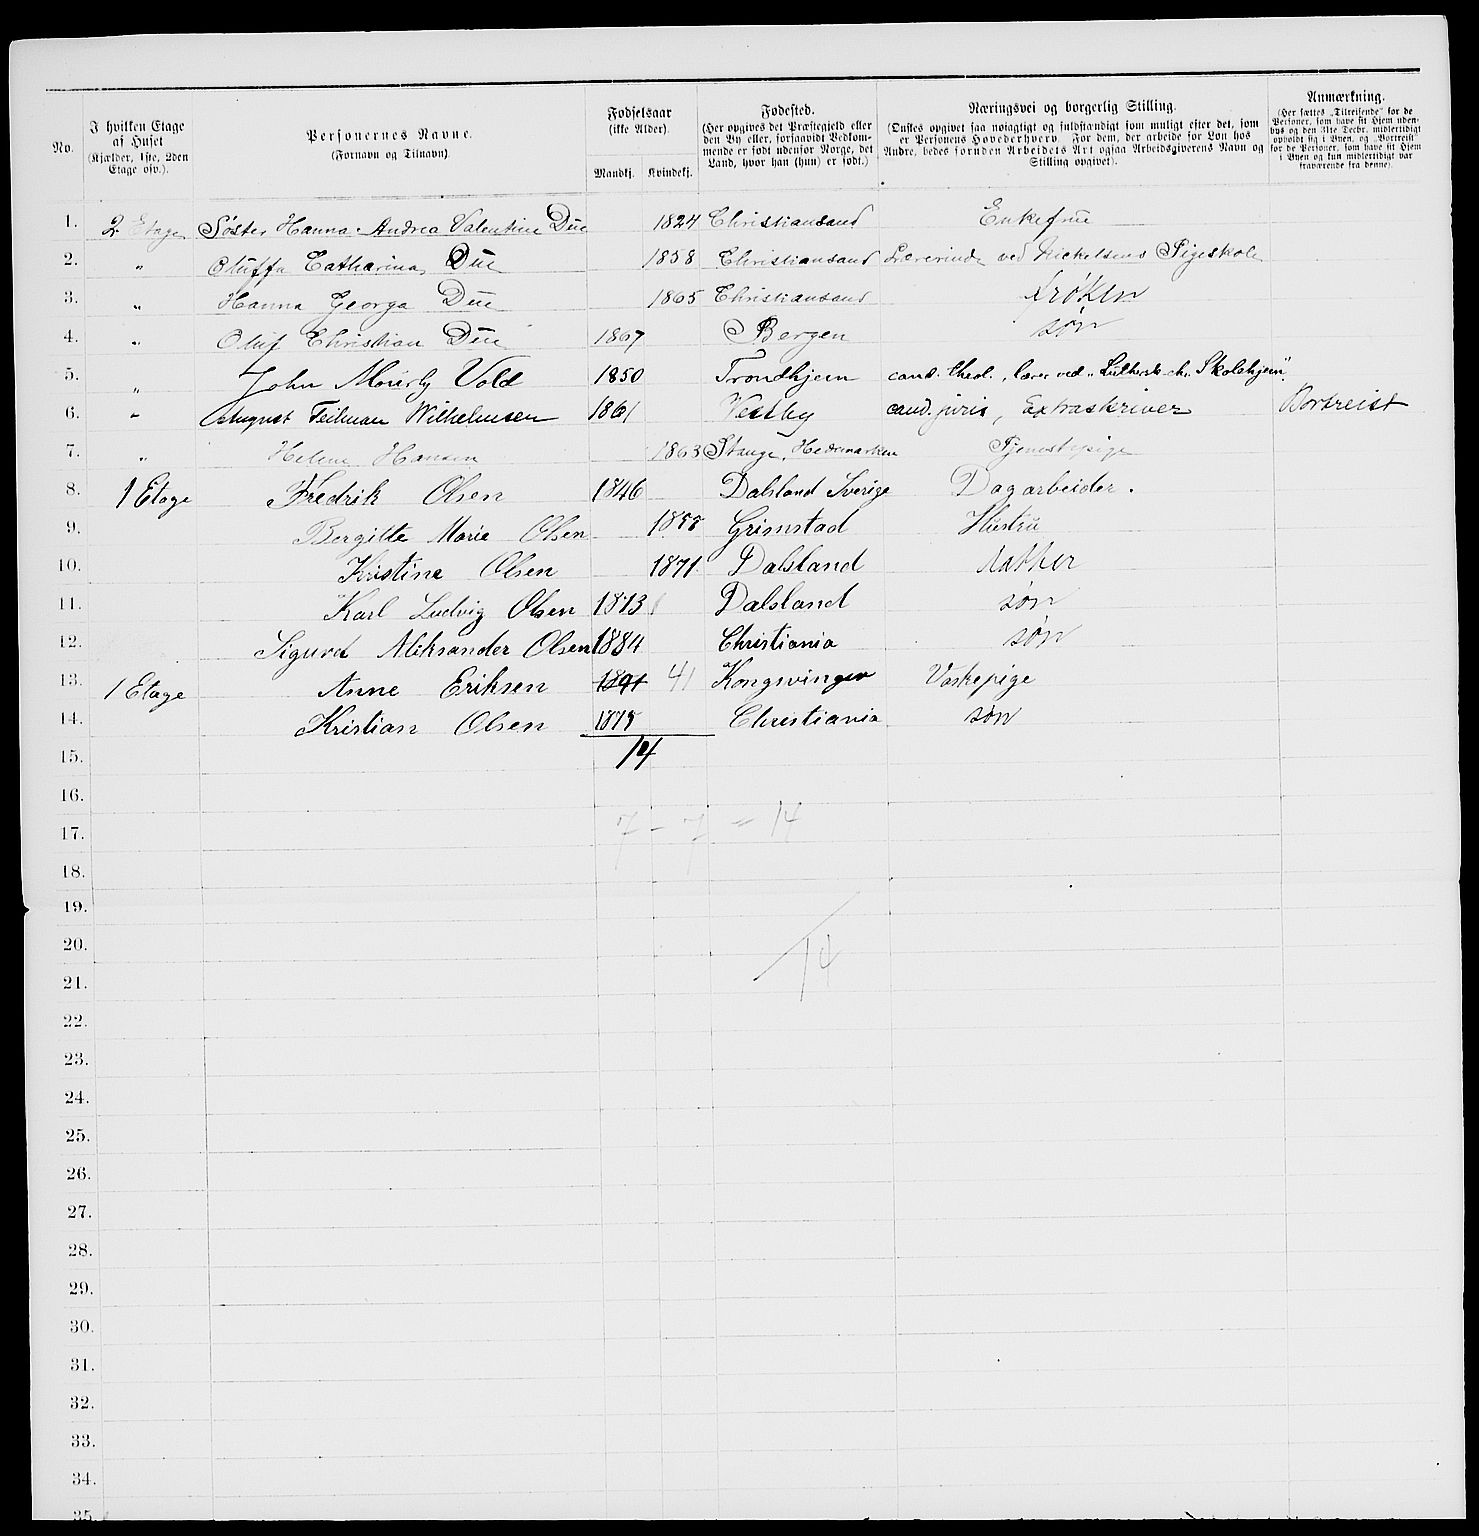 No. | I hvilken Etage af Huset (Kjælder, 1ste, 2den Etage osv.). | Personernes Navne. (Fornavn og Tilnavn). | Fødselsaar (ikke Alder). Mandkj. | Kvindekj. | Fødested. (Her opgives det Præstegjeld eller den By eller, forsaavidt Vedkommende er født udenfor Norge, det Land, hvor han (hun) er født.) | Næringsvei og borgerlig Stilling. (Ønskes opgivet saa nøiagtigt og fuldstændigt som muligt efter det, som er Personens Hovederhverv. For dem, der arbeide for Løn hos Andre, bedes foruden Arbeidets Art ogsaa Arbeidsgiverens Navn og Stilling opgivet). | Anmærkning. (Her sættes „Tilreisende" for de Personer, som have sit Hjem udenbys og den 31te Decbr. midlertidigt opholdt sig i Byen, og „Bortreist" for de Personer, som have sit Hjem i Byen og kun midlertidigt var fraværende fra denne).
1. 2 Etage Søster Hanna Andrea Valentine Düe 1824 Christiansand Enkefrüe
2. " Oluffa Catharina Düe 1858 Christiansand Lærerinde ved Nickelsens Pigeskole
3. " Hanna Georga Düe 1865 Christiansand Frøken
4. " Oluf Christian Düe 1867 Bergen søn
5. " John Mourly Vold 1850 Trondhjem cand. theol., lærer ved „Luthersk ch. Skolehjem".
6. " August Feilman Wilhelmsen 1861 Vestby cand. juris, Extraskriver Bortreist
7. " Helene Hansen 1863 Stange, Hedemarken Tjenestepige
8. 1 Etage Fredrik Olsen 1846 Dalsland Sverige Dagarbeider.
9. Bergitte Marie Olsen 1858 Grimstad Hüstrü
10. Kristine Olsen 1871 Dalsland datter
11. Karl Ludvig Olsen 1873 Dalsland søn
12. Sigurd Aleksander Olsen 1884 Christiania søn
13. 1 Etage Anne Eriksen 1841 41 Kongsvinger Vaskepige
14. Kristian Olsen 1875 Christiania søn
15. 14
16.
7 - 7 = 14
17.
18.
19.
20.
14
21.
22.
23.
24.
25.
26.
27.
28.
29.
30.
31.
32.
33.
34.
35.